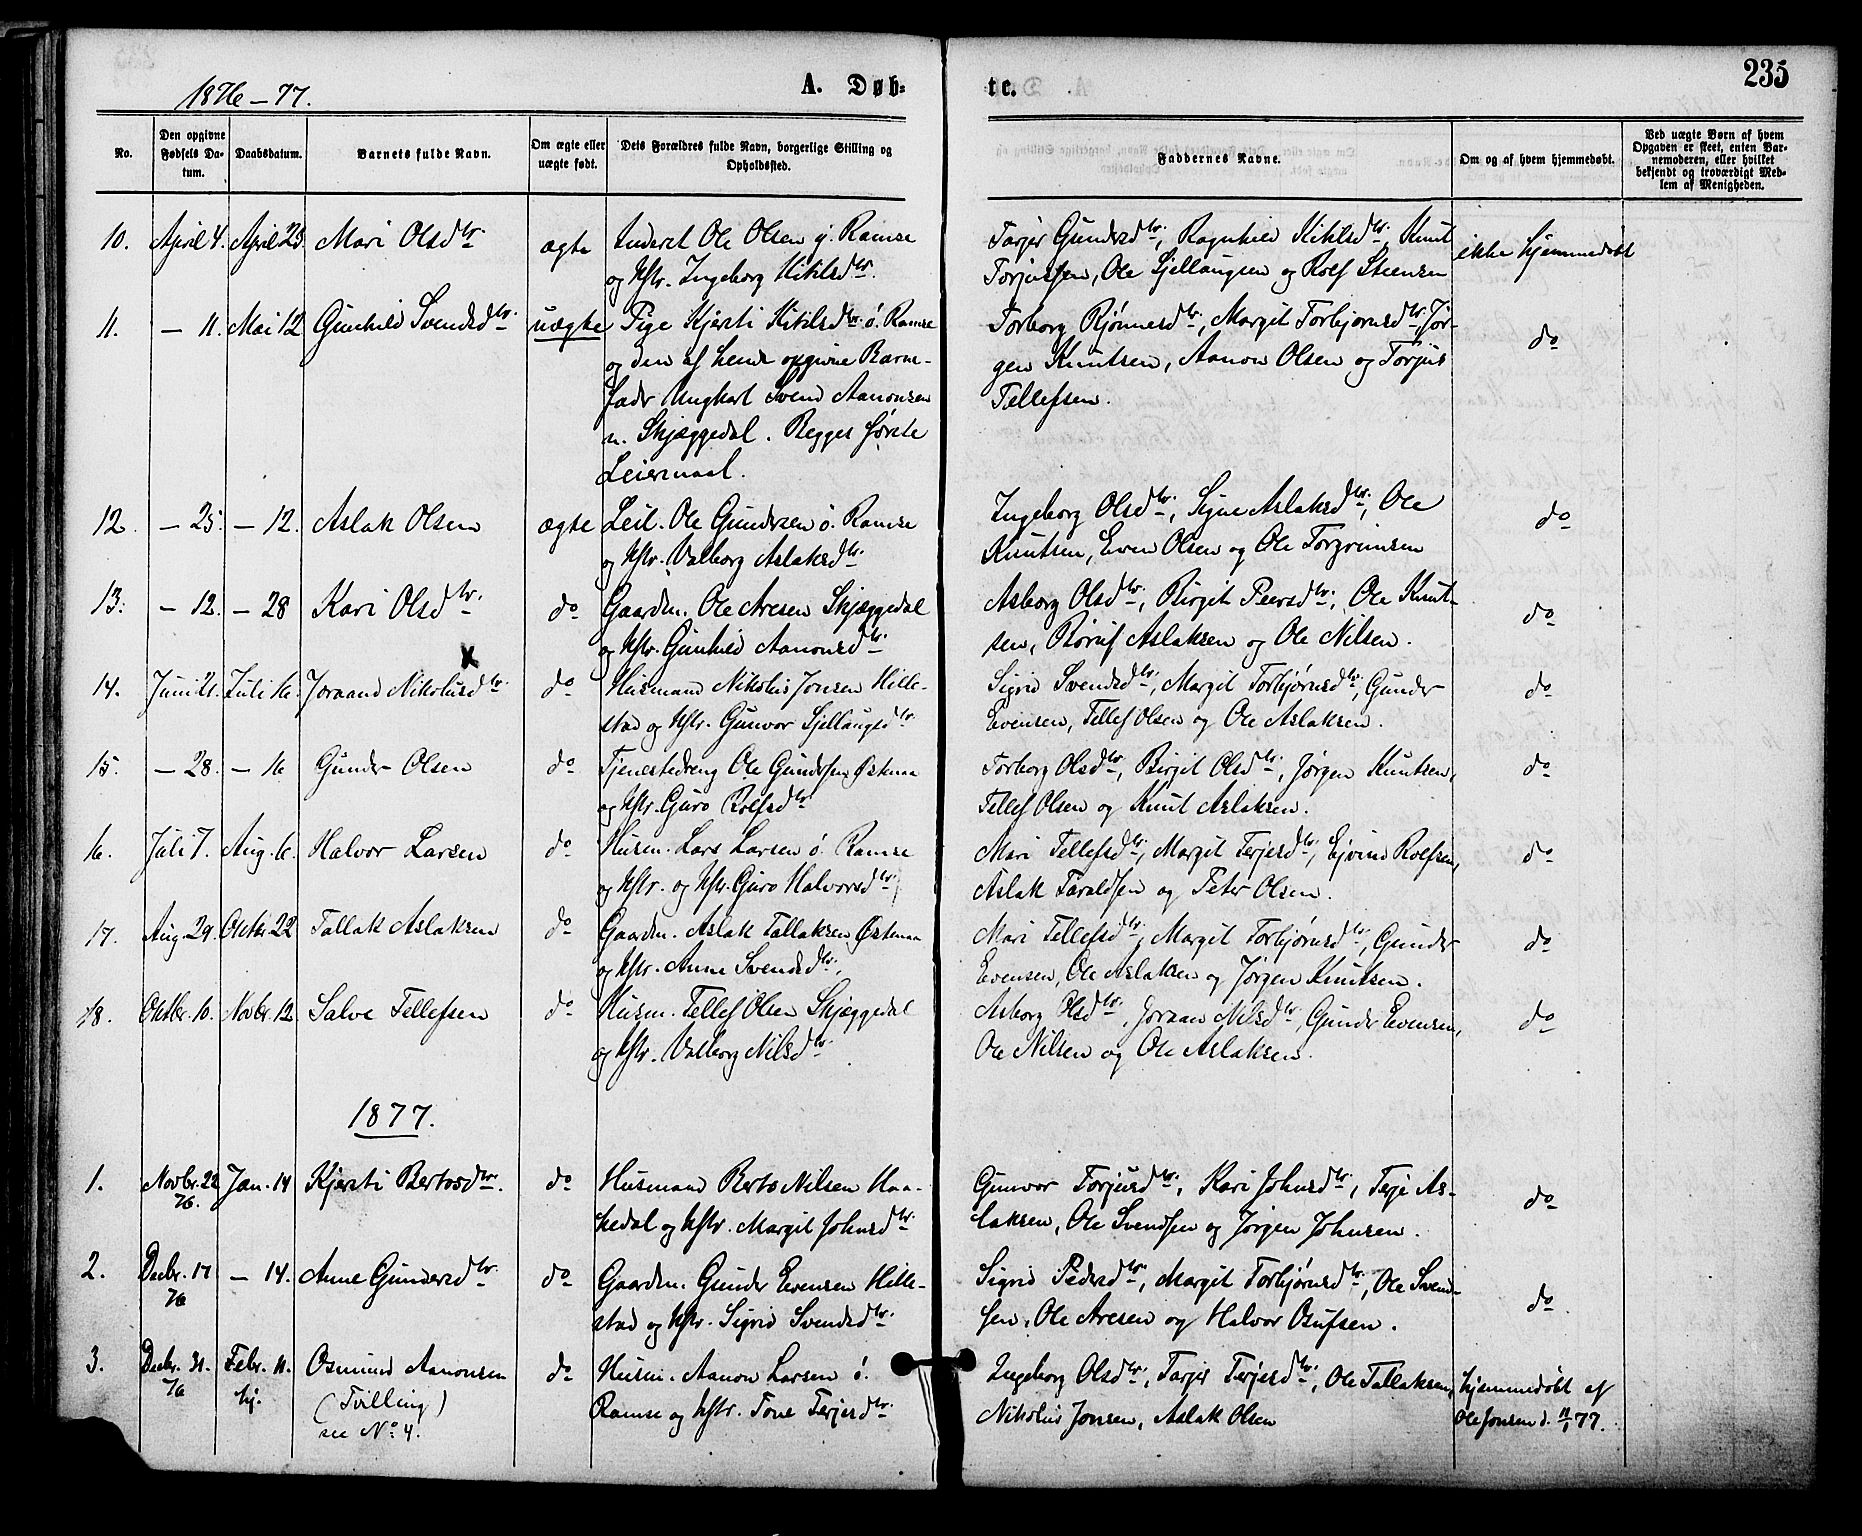 1876-77.
A. Døb-
te.
235
No.
Den opgivne Fødsels Da-tum.
Daabsdatum.
Barnets fulde Navn.
Om ægte eller uægte født.
Dets Forældres fulde Navn, borgerlige Stilling og Opholdssted.
Faddernes Navne.
Om og af hvem hjemmedøbt.
Ved uægte Børn af hvem Opgaven er skeet, enten Bar-nemoderen, eller hvilket bekjendt og troværdigt Med-lem af Menigheden.
10. April 4. April 23. Mari Olsdtr. ægte Inderst Ole Olsen y. Ramse
og Kstr. Ingeborg Kitilsdtr.
Tarjer Gundersdtr, Ragnhild Kitilsdtr, Knut
Torjussen, Ole Sjellaugsen og Rolf Steensen
ikke hjemmedøbt
11. — 11. Mai 12 Gunhild Svendsdtr. uægte Pige Kjersti Kitilsdtr ó. Ramse
og den af hende opgivne Barne-
fader Ungkarl Svend Aanonsen
n. Skjæggedal. Begges første
Leiermaal.
Torborg Bjønnesdtr, Margit Torbjørnsdtr, Jør-
gen Knutsen, Aanon Olsen og Torjus
Tellefsen.
do
12. — 25. — 12. Aslak Olsen ægte Leil. Ole Gundersen ó. Ramse
og Kstr. Valborg Aslaksdtr
Ingeborg Olsdtr, Signe Aslaksdtr, Ole
Knutsen, Even Olsen og Ole Torgrimsen
do
13. — 12. — 28 Kari Olsdtr. do Gaardm. Ole Aresen Skjæggedal
og Kstr. Gunhild Aanonsdtr
Asborg Olsdtr, Birgit Peersdtr, Ole Knut-
sen, Børuf Aslaksen og Ole Nilsen.
do
X
14. Juni 21. Juli 16. Joraand Nikolusdtr. do Husmand Nikolus Jonsen Hille-
stad og Kstr. Gunvor Sjellaugsdtr
Sigrid Svendsdtr, Margit Torbjørnsdtr, Gunder
Evensen, Tellef Olsen og Ole Aslaksen.
do
15. — 28. — 16 Gunder Olsen do Tjenestedreng Ole Gundersen Østenaa
og Kstr. Guro Rolfsdtr
Torborg Olsdtr, Birgit Olsdtr, Jørgen Knutsen,
Tellef Olsen og Knut Aslaksen.
do
16. Juli 7. Aug. 6. Halvor Larsen do Husm. Lars Larsen ó. Ramse
og Kstr. og Kstr. Guro Halvorsdtr
Mari Tellefsdtr, Margit Terjesdtr, Ejvind Rolfsen,
Aslak Taraldsen og Peter Olsen.
do
17. Aug. 29. Oktbr. 22 Tallak Aslaksen do Gaardm. Aslak Tallaksen Østenaa
og Kstr. Anne Svendsdtr.
Mari Tellefsdtr, Margit Torbjørnsdtr, Gunder
Evensen, Ole Aslaksen og Jørgen Knutsen.
do
18. Oktbr. 10. Novbr. 12 Salve Tellefsen do Husm. Tellef Olsen Skjæggedal
og Kstr. Valborg Nilsdtr.
Asborg Olsdtr, Joraan Nilsdtr, Gunder Evensen,
Ole Nilsen og Ole Aslaksen.
do
1877.
1. Novbr. 22 76. Jan. 14 Kjersti Bertosdtr. do Husmand Berto Nilsen Haa-
kedal og Kstr. Margit Johnsdtr.
Gunvor Torjusdtr, Kari Johnsdtr, Terje As-
laksen, Ole Svendsen og Jørgen Johnsen.
do
2. Decbr. 17 76 — 14. Anne Gundersdtr do Gaardm. Gunder Evensen Hille-
stad og Kstr. Sigrid Svendsdtr.
Sigrid Pedersdtr, Margit Torbjørnsdtr, Ole Svend-
sen, Ole Aresen og Halvor Osufsen.
do
3. Decbr. 31. 76 Febr. 11. Osmund Aanonsen do Husm. Aanon Larsen ó.
(Tvilling) Ramse og Kstr. Tone Terjesdtr
see No. 4.
Ingeborg Olsdtr, Tarjer Terjesdtr, Ole Tallaksen,
Nikolus Jonsen, Aslak Olsen
hjemmedøbt af
Ole Jonsen d. 11/1 77.